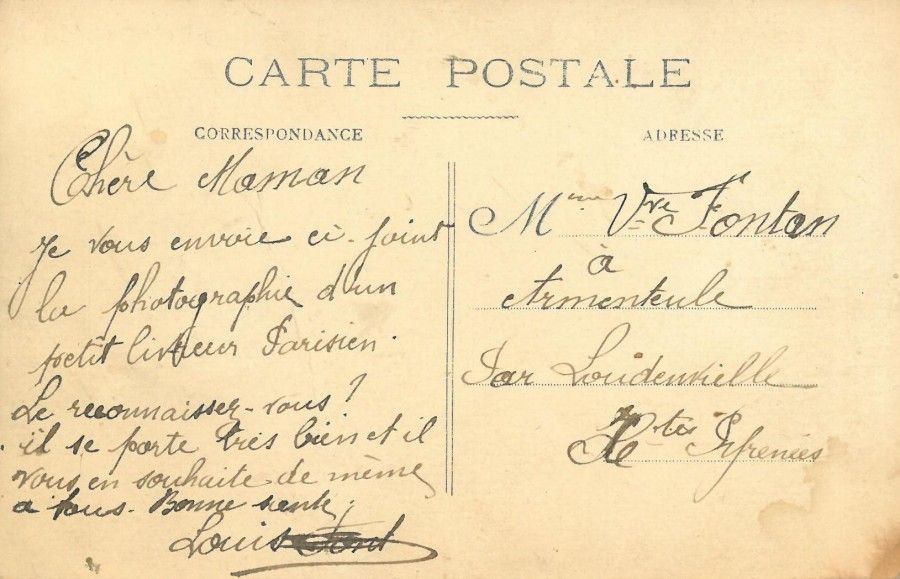 CARTE POSTALE
CORRESPONDANCE
Chère Maman
Je vous envoie ci-joint
la photographie d'un
petit livreur Parisien.
Le reconnaissez-vous?
il se porte très bien et il
vous en souhaite de même
a tous. Bonne santé.
Louis Font
ADRESSE
Mme Vve Fontan
à
Armenteule
Par Loudenvielle
Htes Pyrenées